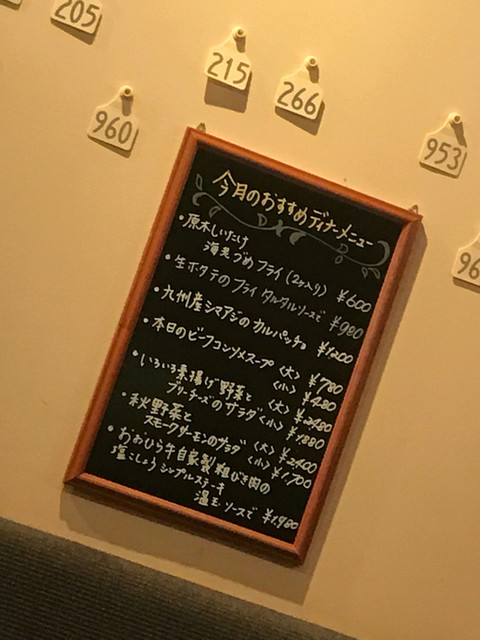 205
215
266
960
953
96
今月のおすすめディナーメニュー
・原木しいたけ
海老づめフライ(2ヶ入り) ¥600
・生ホタテのフライ タルタルソースで ¥980
・九州産シマアジのカルパッチョ ¥1200
・本日のビーフコンソメスープ 〈大〉 ¥780
〈小〉 ¥480
・いろいろ素揚げ野菜と 〈大〉 ¥2480
ブリーチーズのサラダ 〈小〉 ¥1880
・秋野菜と
スモークサーモンのサラダ 〈大〉 ¥2400
〈小〉 ¥1,700
・おおひら牛自家製粗びき肉の
塩こしょうシンプルステーキ
温玉ソースで ¥1,980